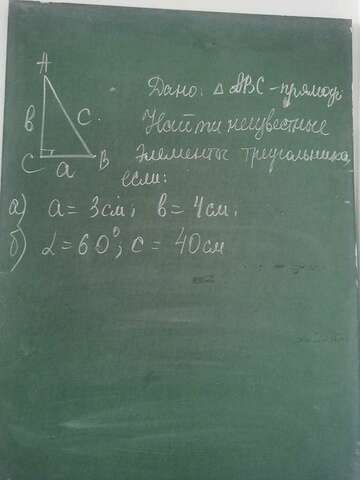 A
Дано: △ ABC - прямоуг.
в
c
Найти неизвестные
C
a
B
элементы треугольника,
если:
а) a = 3см; в = 4см;
б) α = 60°; c = 40см